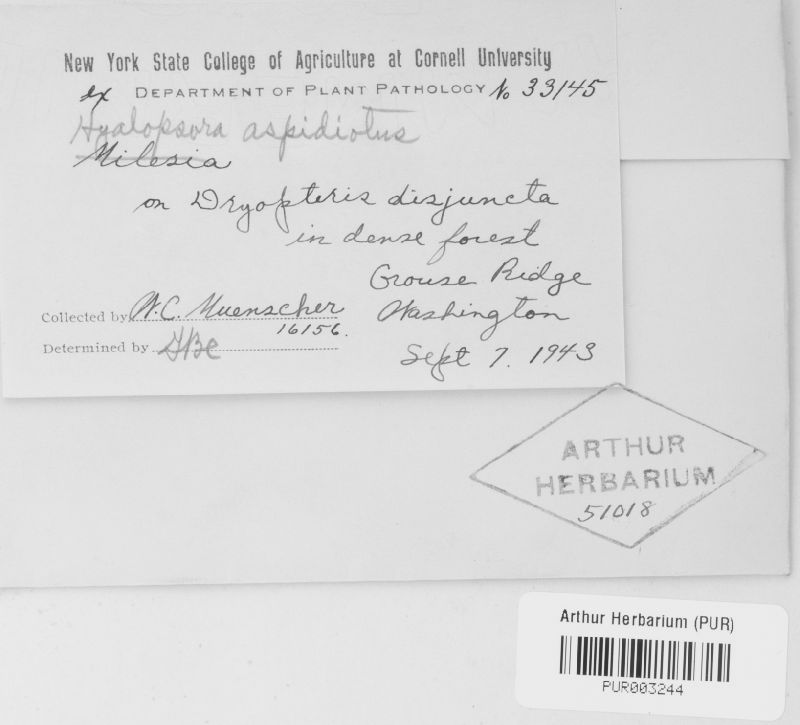 New York State College of Agriculture at Cornell University
ex DEPARTMENT OF PLANT PATHOLOGY No 33145
Hyalopsora aspidiotus
Milesia
on Dryopteris disjuncta
in dense forest
Grouse Ridge
Collected by W.C. Muenscher Washington
16156.
Determined by Sept 7. 1943
ARTHUR
HERBARIUM
51018
Arthur Herbarium (PUR)
PUR003244